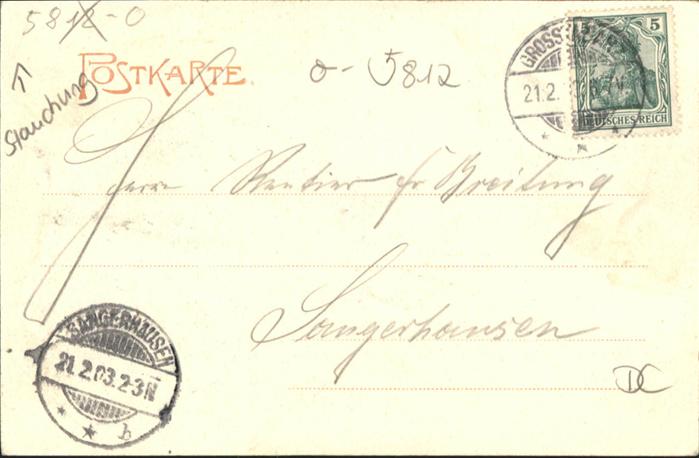 5812-0
POSTKARTE
0-5812
Stauchung
5 5
GROSS
21.2.
DEUTSCHES REICH
Herrn Rentier Fr Breitung
Sangerhausen
SANGERHAUSEN
21.2.03.2-3N
b
DC